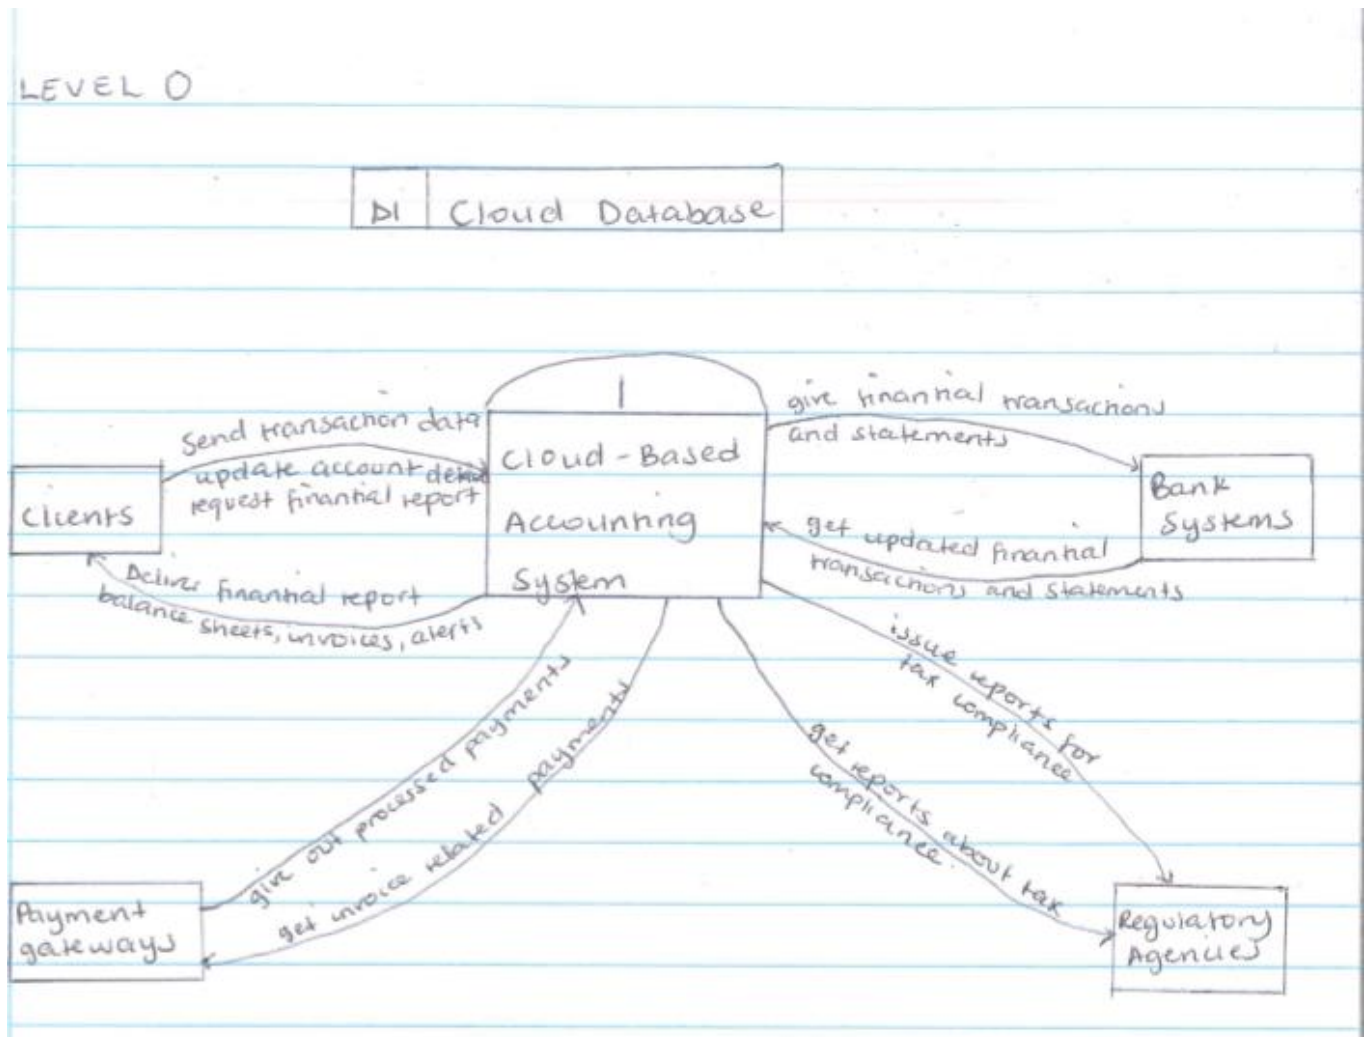 LEVEL 0
D1 Cloud Database
1
Cloud-Based
Accounting
System
Send transaction data
update account
request financial report
Clients
Deliver financial report
balance sheets, invoices, alerts
give financial transactions
and statements
Bank
Systems
get updated financial
transactions and statements
issue reports for
tax compliance
get reports about tax
compliance.
give out processed payments
get invoice related payments
Payment
gateways
Regulatory
Agencies